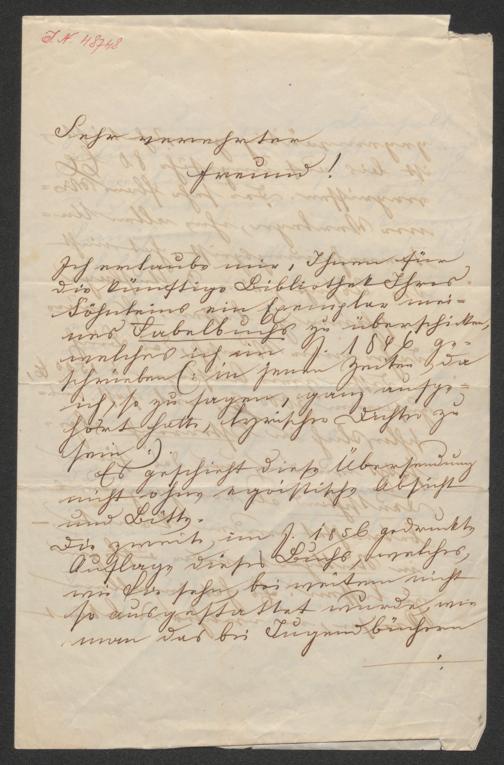 I. N. 48748
Sehr verehrter
Freund!
Ich erlaube mir, Ihnen für
die künftige Bibliothek Ihres
Söhnleins ein Exemplar mei-
nes Fabelbuchs zu überschicken,
welches ich im J. 1846 ge-
schrieben (: in jenen Zeiten, da
ich, so zu sagen, ganz aufge-
hört hatte, lyrischer Dichter zu
sein :)
Es geschieht diese Übersendung
nicht ohne egoistische Absicht
und Bitte.
Die zweite, im J. 1856 gedruckte
Auflage dieses Buchs, welches,
wie Sie sehn, bei weitem nicht
so ausgestattet wurde, wie
man das bei Jugendbüchern